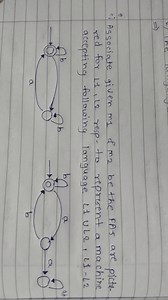 Associate given M1 & M2 be the FA's are
red for L1, L2 resp. to represent a machine
accepting following language L1 U L2, L1-L2
b
b
a
b
a
b
a
a